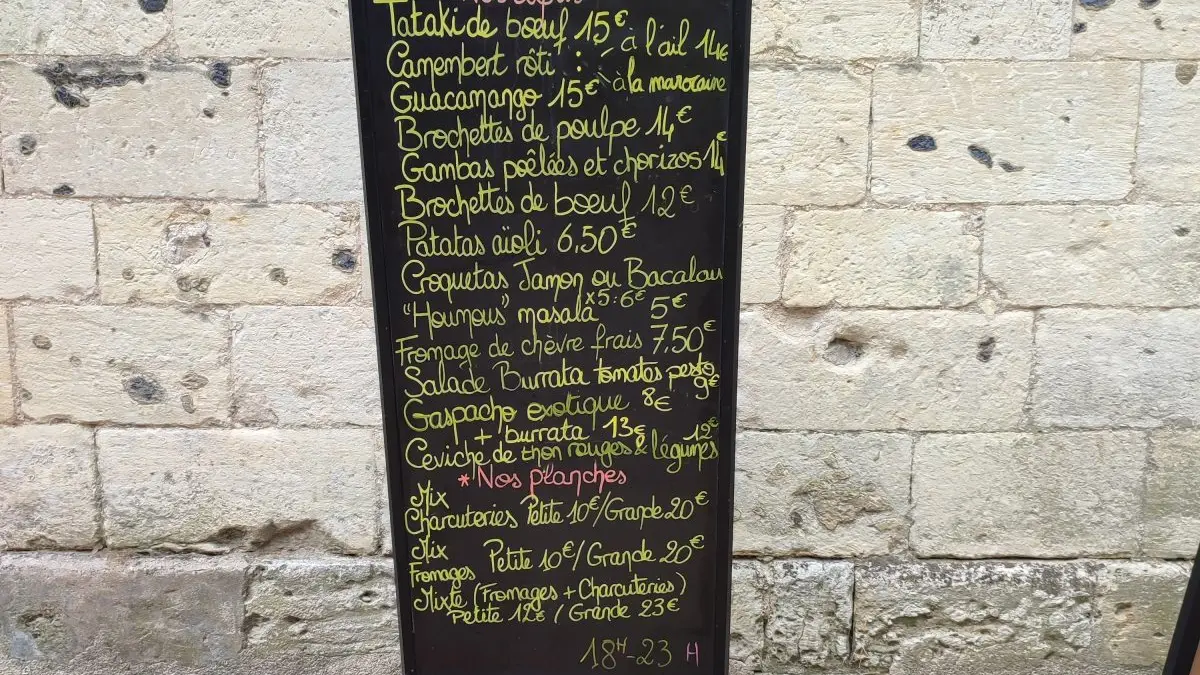 Tataki de boeuf 15€
Camembert rôti : à l'ail 14€
à la marocaine
Guacamango 15€
Brochettes de poulpe 14€
Gambas poêlées et chorizos 14€
Brochettes de boeuf 12€
Patatas aïoli 6,50€
Croquetas Jamon ou Bacalau
x5 : 6€
"Houmous" masala 5€
Fromage de chèvre frais 7,50€
Salade Burrata tomates pesto
9€
Gaspacho exotique 8€
+ burrata 13€
Ceviche de thon rouges & légumes 12€
*Nos planches
Mix
Charcuteries Petite 10€/Grande 20€
Mix Petite 10€/Grande 20€
Fromages
Mixte (Fromages + Charcuteries)
Petite 12€ / Grande 23€
18H-23 H